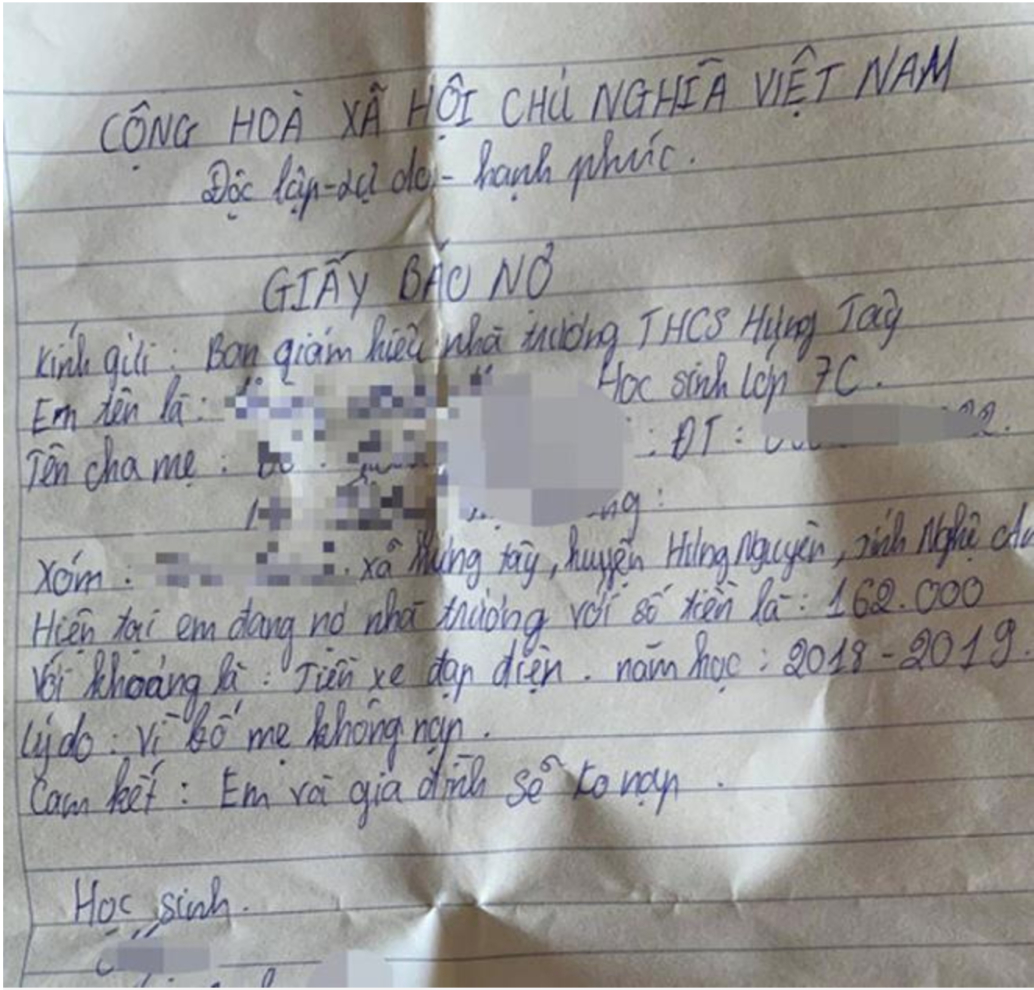 CỘNG HOÀ XÃ HỘI CHỦ NGHĨA VIỆT NAM
Độc lập - tự do - hạnh phúc.
GIẤY BÁO NỢ
Kính gửi : Ban giám hiệu nhà trường THCS Hưng Tây
Em tên là : Học sinh lớp 7C .
Tên cha mẹ : : ĐT :
Xóm : xã Hưng tây, huyện Hưng Nguyên, tỉnh Nghệ An
Hiện tại em đang nợ nhà trường với số tiền là : 162.000
Với khoảng là : Tiền xe đạp điện . năm học : 2018 - 2019.
Lý do : Vì bố mẹ không nạp .
Cam kết : Em và gia đình sẽ ko nạp .
Học sinh .